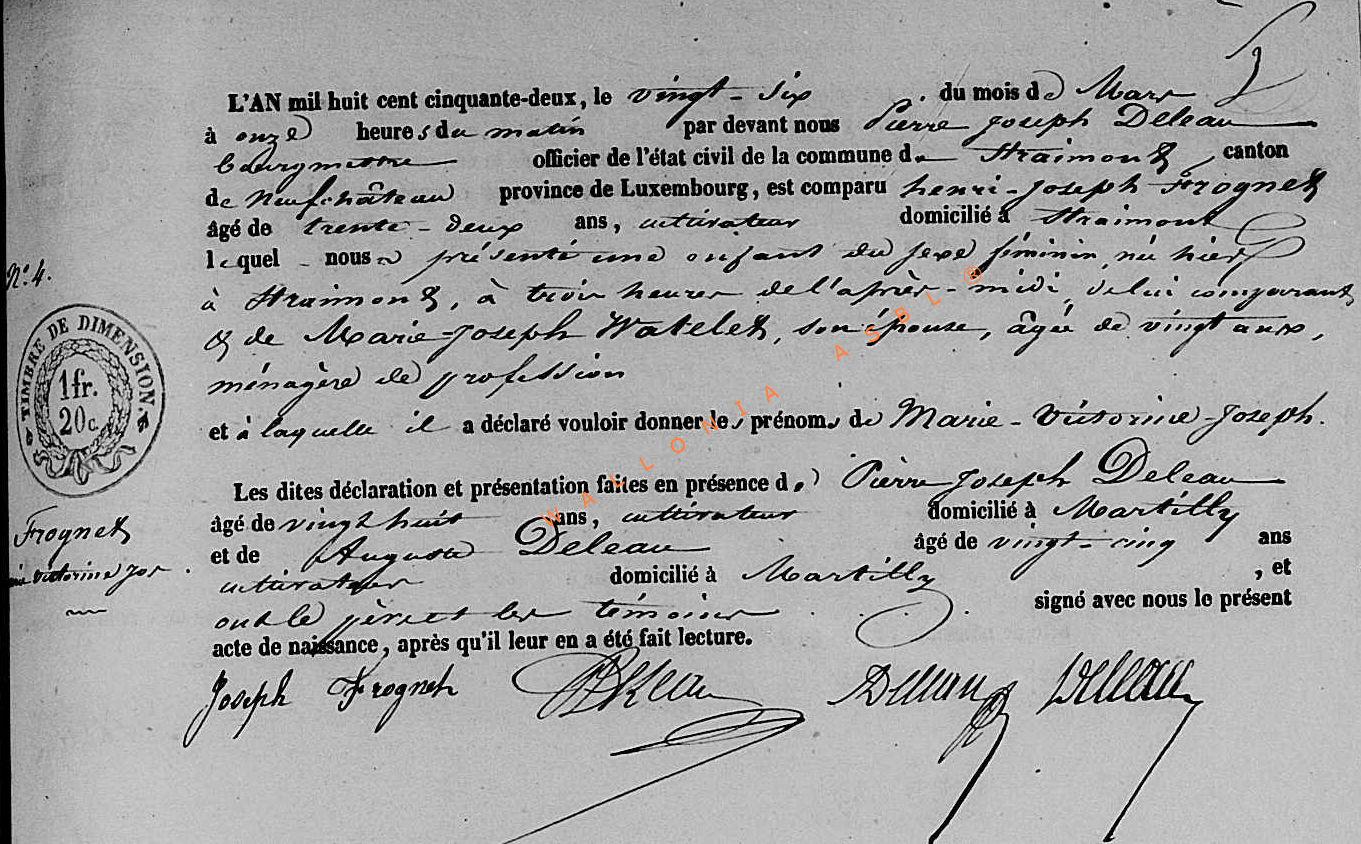 L'AN mil huit cent cinquante-deux, le vingt-six du mois de Mars
à onze heures du matin par devant nous Pierre Joseph Deleau
bourgmestre officier de l'état civil de la commune de Straimont, canton
de Neufchâteau province de Luxembourg, est comparu henri-Joseph Frognet
âgé de trente-deux ans, cultivateur domicilié à Straimont
lequel nous a présenté une enfant du sexe féminin, née hier
à Straimont, à trois heures de l'après-midi, de lui comparant
& de Marie-Joseph Watelet, son épouse, âgée de vingt ans,
ménagère de profession
et à laquelle il a déclaré vouloir donner les prénoms de Marie-Victorine-Joseph.
Les dites déclaration et présentation faites en présence de Pierre Joseph Deleau
âgé de vingt huit ans, cultivateur domicilié à Martilly
et de Auguste Deleau âgé de vingt-cinq ans
cultivateur domicilié à Martilly, et
ont le père et les témoins signé avec nous le présent
acte de naissance, après qu'il leur en a été fait lecture.
Joseph Frognet Deleau Deleau
N° 4.
TIMBRE DE DIMENSION
1 fr.
20 c.
Frognet
Victorine Jos
WALLONIA ASBL ®